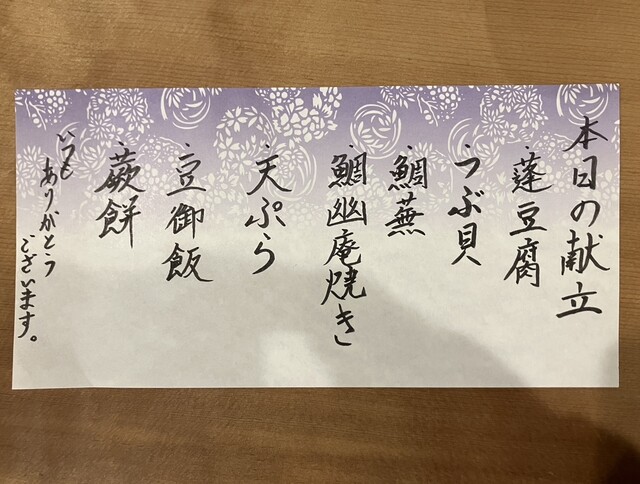 本日の献立
・蓬豆腐
・つぶ貝
・鯛蕪
・鯛幽庵焼き
・天ぷら
・豆御飯
・蕨餅
いつも
ありがとう
ございます。